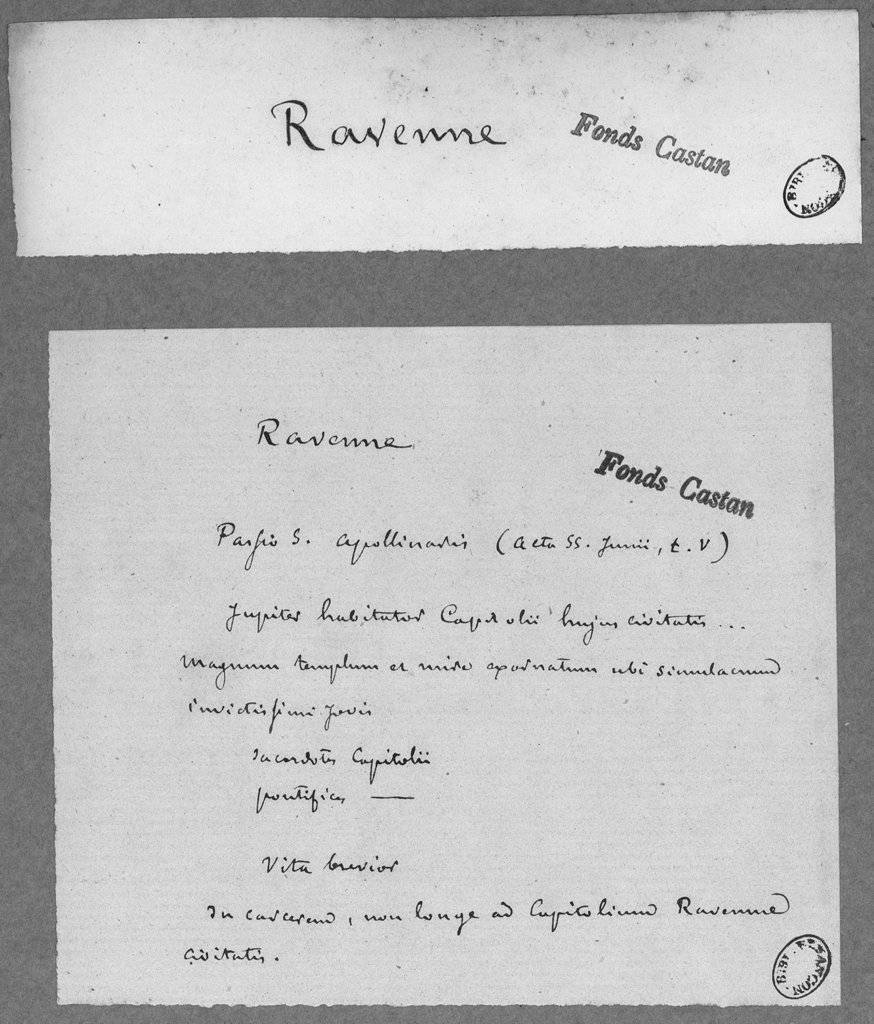 Ravenne
Fonds Castan
Ravenne
Fonds Castan
Passio S. Apollinaris (Acta SS. Junii, t. V)
Jupiter habitator Capitolii hujus civitatis ...
magnum templum et mire exornatum ubi simulacrum
invictissimi Jovis
Sacerdotes Capitolii
pontifices —
Vita brevior
In carcerem, non longe ad Capitolium Ravennæ
civitatis.